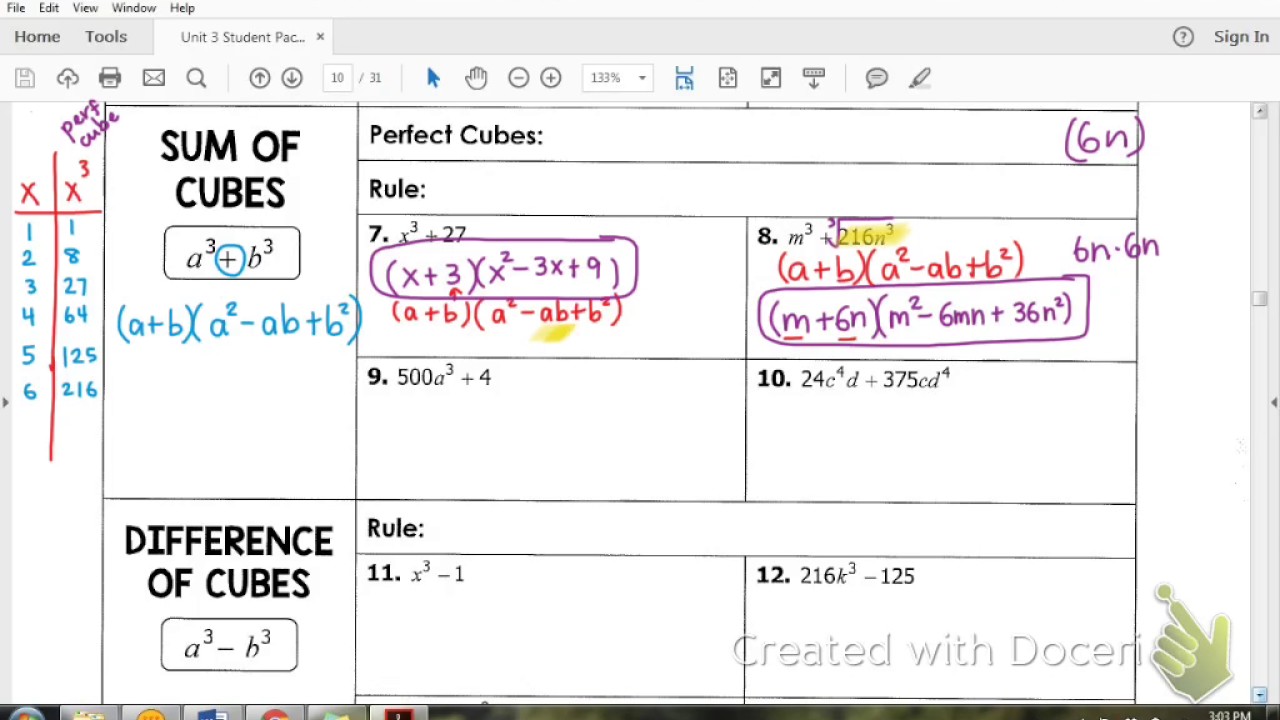 File Edit View Window Help
Home Tools Unit 3 Student Pac... × Sign In
10 / 31 133%
perf cube
x x³
1 1
2 8
3 27
4 64
5 125
6 216
SUM OF
CUBES
a³ + b³
(a+b)(a² - ab + b²)
Perfect Cubes:
(6n)
Rule:
7. x³ + 27
(x + 3)(x² - 3x + 9)
(a + b)(a² - ab + b²)
8. m³ + ∛216n³
6n · 6n
(a + b)(a² - ab + b²)
(m + 6n)(m² - 6mn + 36n²)
9. 500a³ + 4
10. 24c⁴d + 375cd⁴
DIFFERENCE
OF CUBES
a³ - b³
Rule:
11. x³ - 1
12. 216k³ - 125
Created with Doceri
3:03 PM